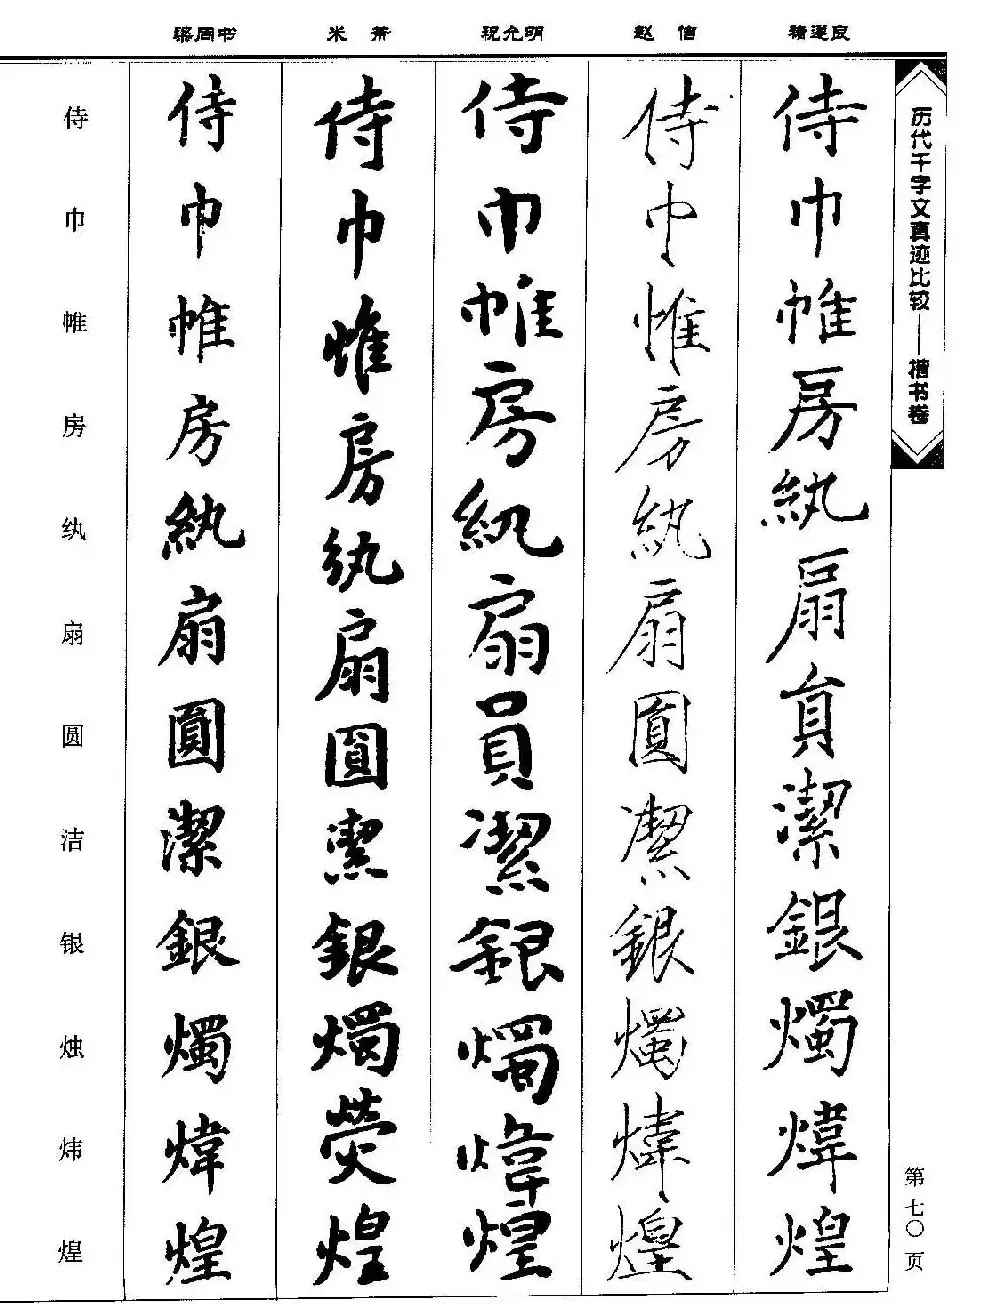 历代千字文真迹比较——楷书卷
第七〇页
褚遂良
侍巾帷房紈扇貟潔銀燭煒煌
赵佶
侍巾帷房紈扇圓潔銀燭煒煌
祝允明
侍巾帷房紈扇員潔銀燭煒煌
米芾
侍巾帷房紈扇圓潔銀燭熒煌
梁同书
侍巾帷房紈扇圓潔銀燭煒煌
侍巾帷房纨扇圆洁银烛炜煌